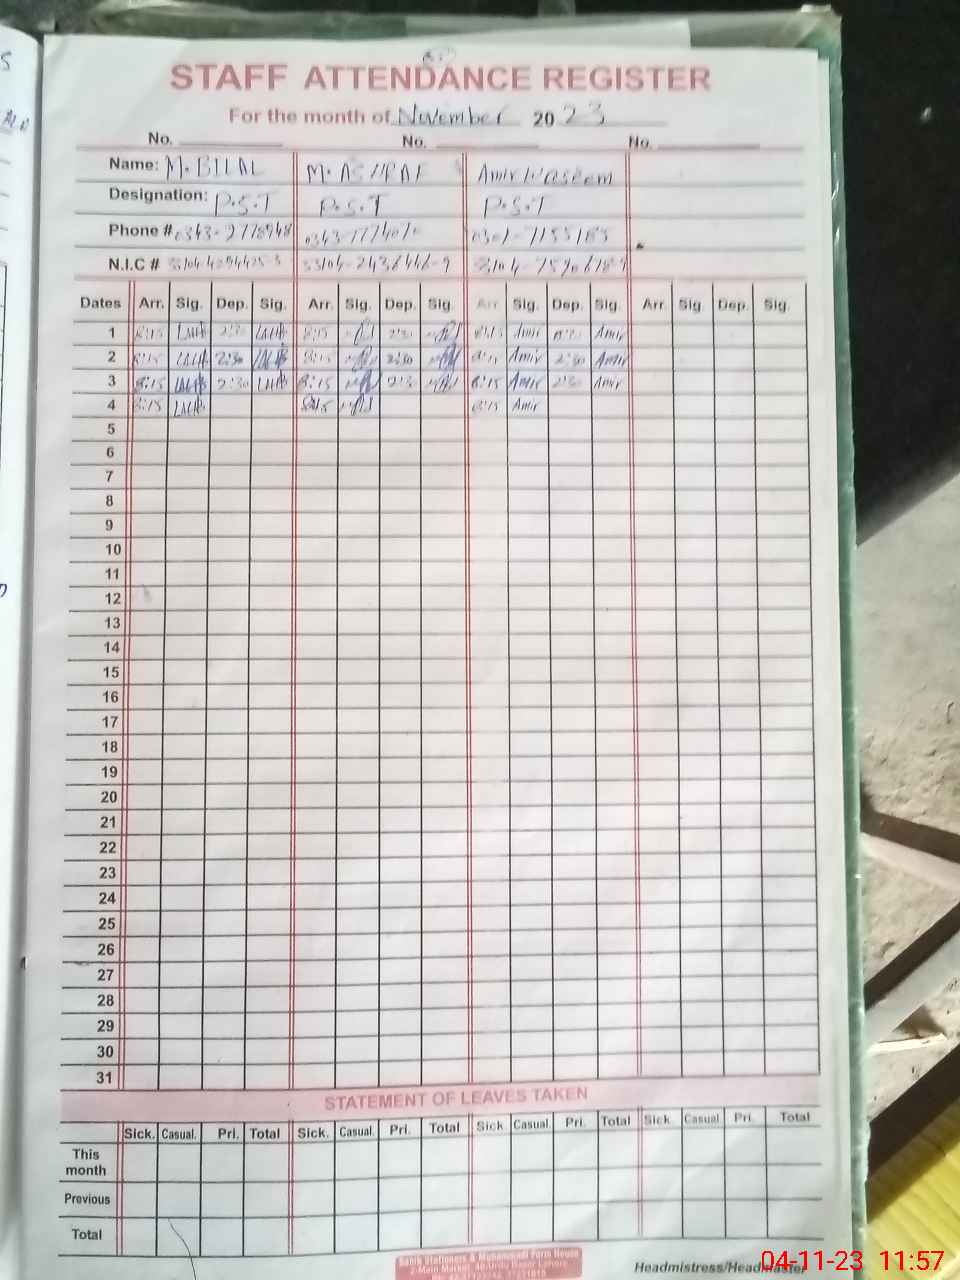 STAFF ATTENDANCE REGISTER
For the month of November 2023
No. No. No.
Name: M. BILAL M. ASHRAF Amir Waseem
Designation: P.S.T P.S.T P.S.T
Phone # 0343-2778948 0301-7155185
N.I.C #
Dates Arr. Sig. Dep. Sig. Arr. Sig. Dep. Sig. Arr Sig. Dep. Sig. Arr. Sig. Dep. Sig.
1 8:15 2:30 8:15 2:30 8:15 Amir Amir
2 8:15 2:30 8:15 2:30 8:15 Amir 2:30 Amir
3 8:15 2:30 8:15 2:30 8:15 Amir 2:30 Amir
4 8:15 8:15 8:15 Amir
5
6
7
8
9
10
11
12
13
14
15
16
17
18
19
20
21
22
23
24
25
26
27
28
29
30
31
STATEMENT OF LEAVES TAKEN
Sick. Casual. Pri. Total Sick. Casual. Pri. Total Sick Casual. Pri. Total Sick. Casual Pri. Total
This month
Previous
Total
Headmistress/Headmaster
04-11-23 11:57